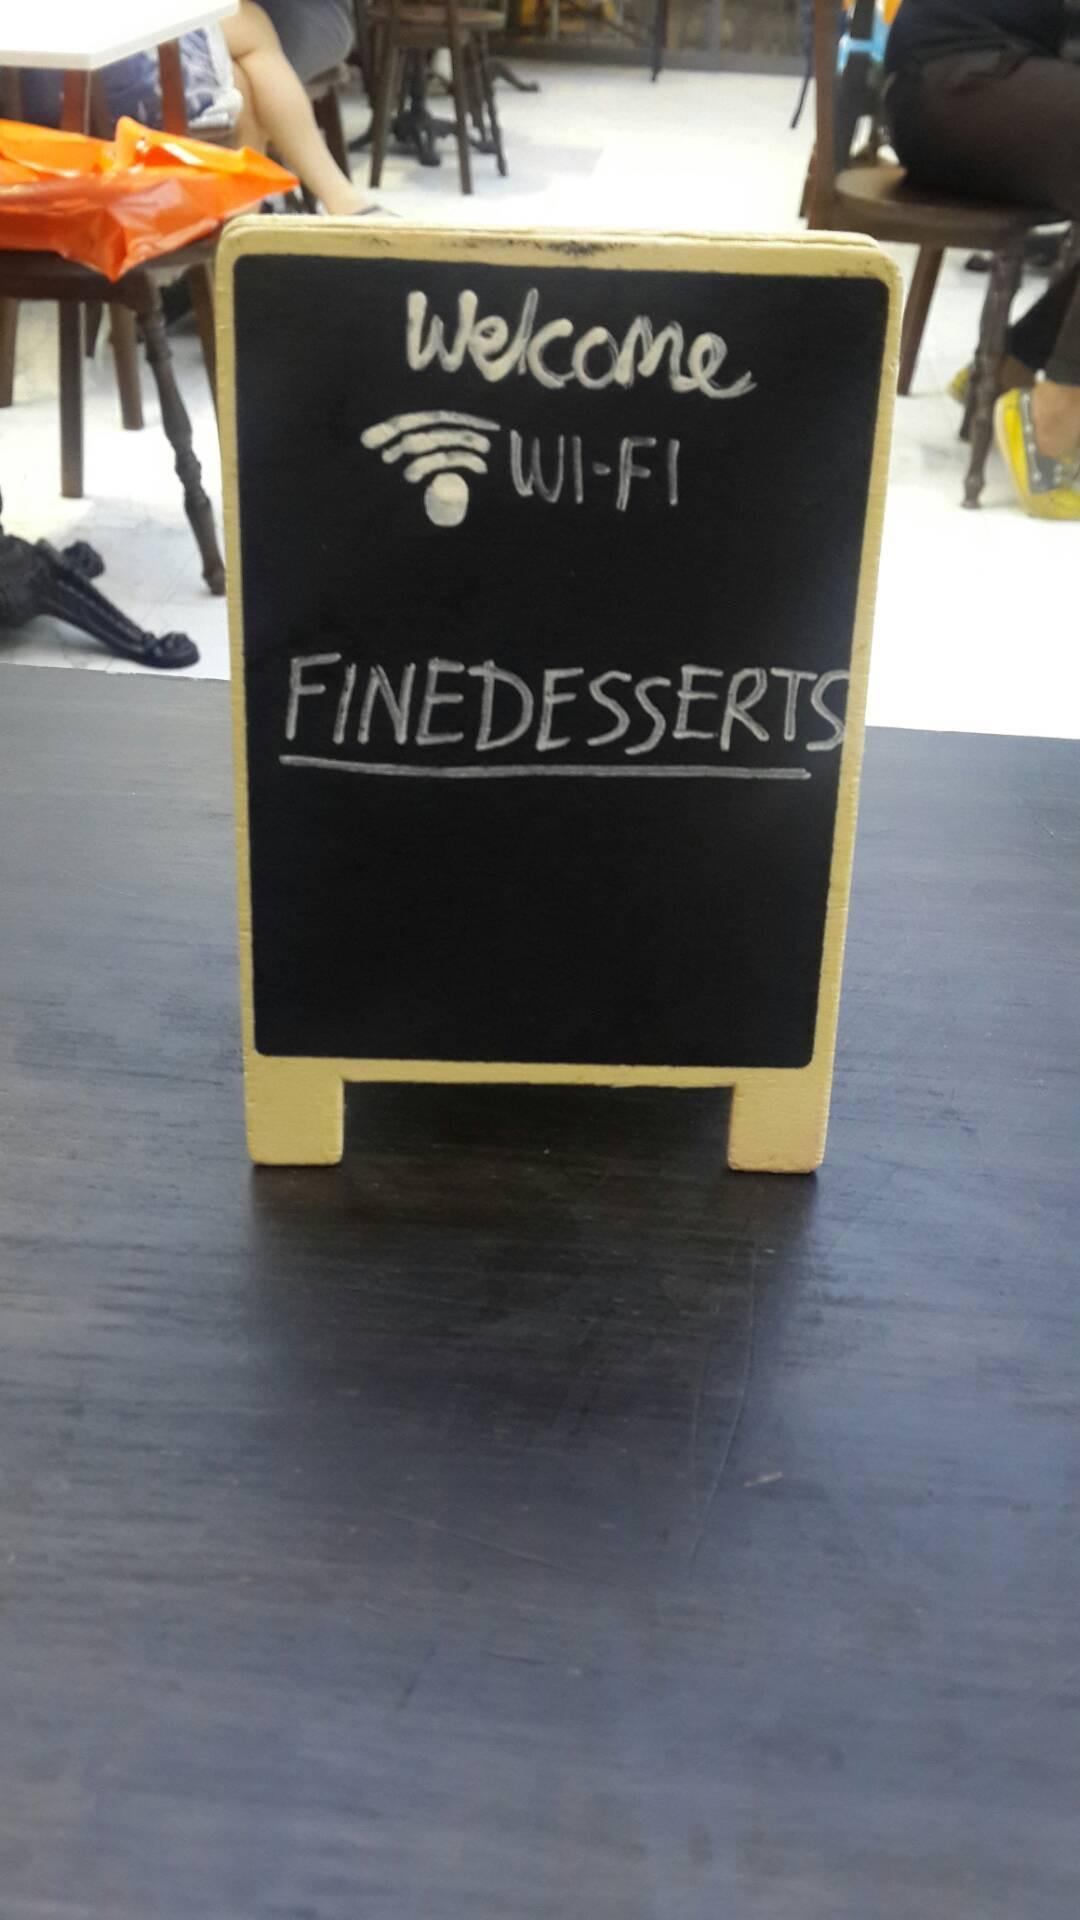 Welcome
WI-FI
FINEDESSERTS